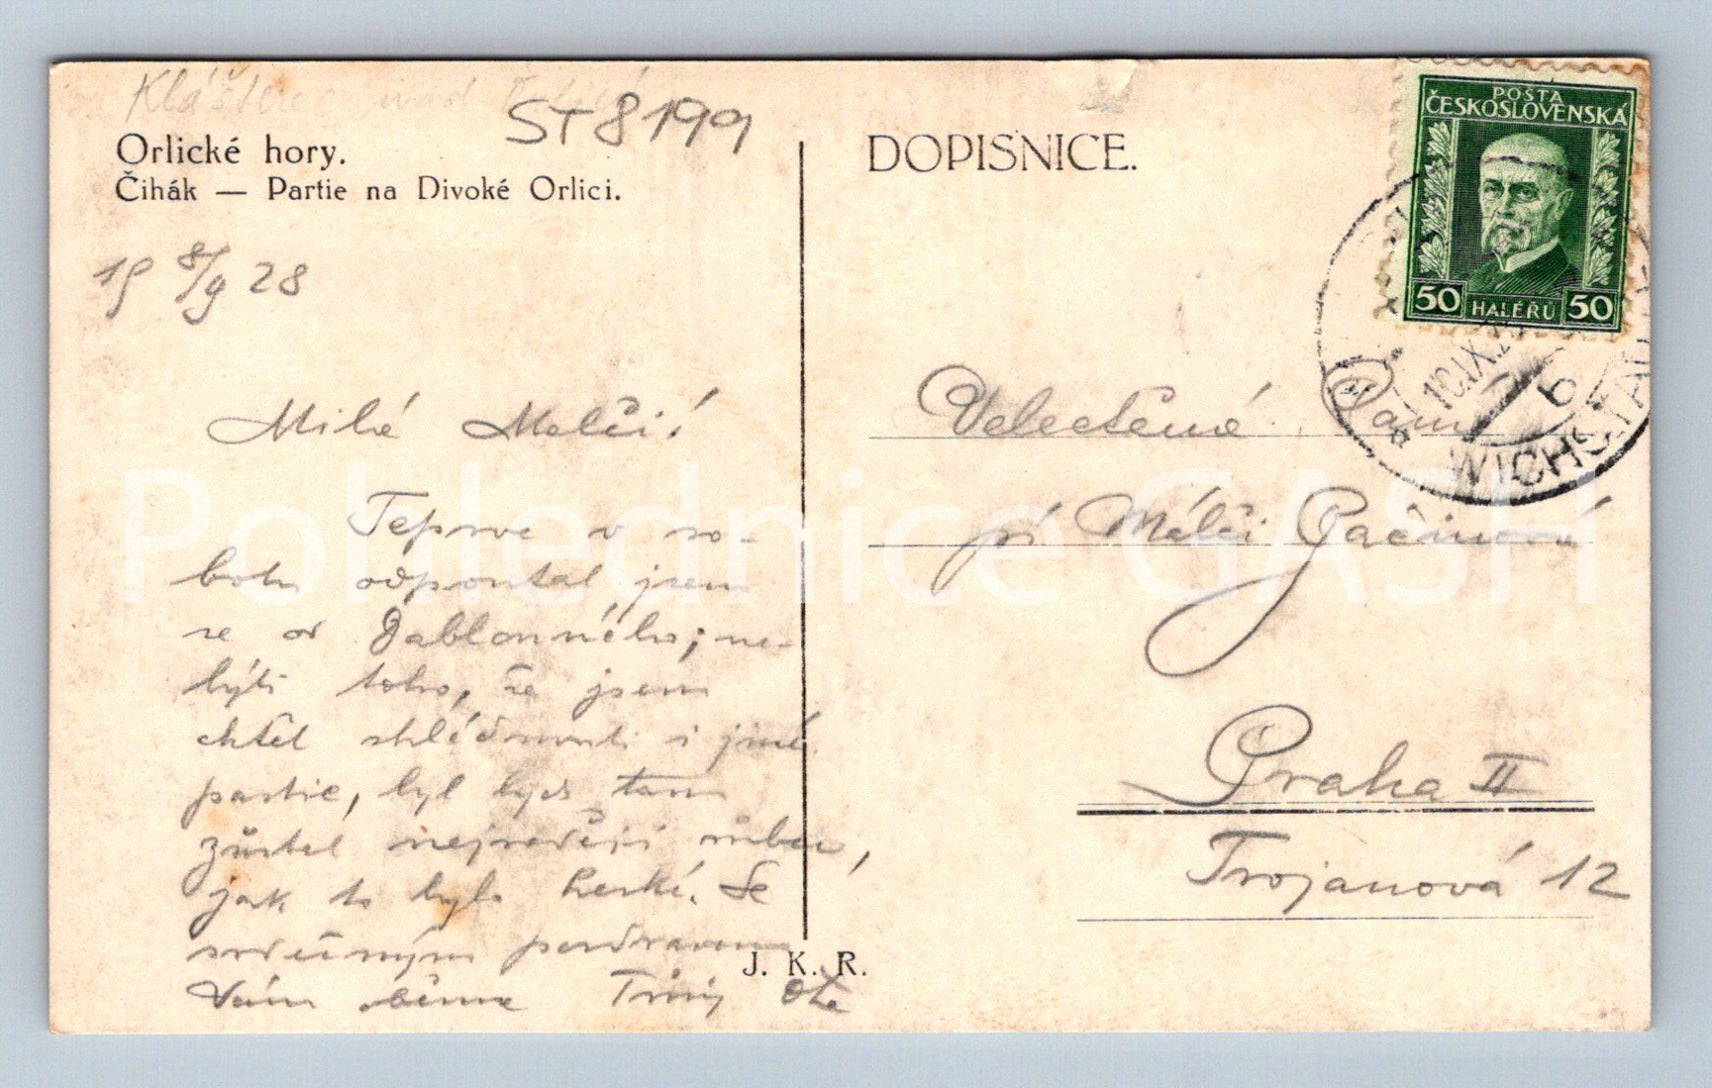 Klášterec nad
ST8199
Orlické hory.
Čihák — Partie na Divoké Orlici.
19 8/9 28
Milá Melči!
Teprve v so-
botu odpoutal jsem
se od Jablonného; ne-
býti toho, že jsem
chtěl shlédnouti i jiné
partie, byl bych tam
zůstal nejraději vůbec,
jak to bylo hezké. Se
srdečným pozdravem
Vám oběma Tvůj Ota
J. K. R.
DOPISNICE.
POŠTA
ČESKOSLOVENSKÁ
50 HALÉŘŮ 50
10.IX.
b
WICHSTA
Velectěná Paní
pí Melči
Praha II
Trojanová 12
Pohlednice GASH